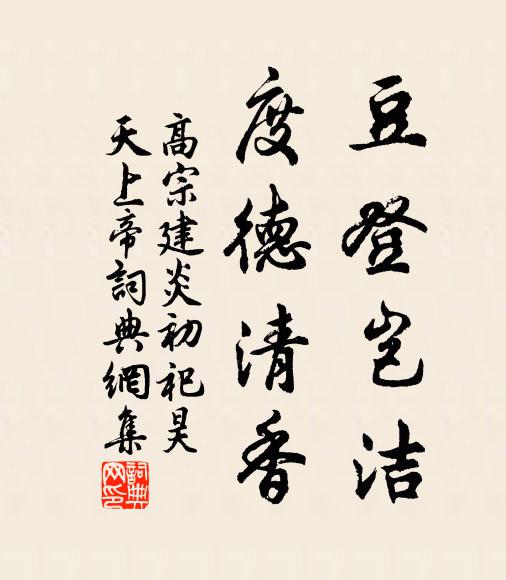 豆登岂洁
度德清香
高宗建炎初祀昊
天上帝詞典網集
詞典
网印